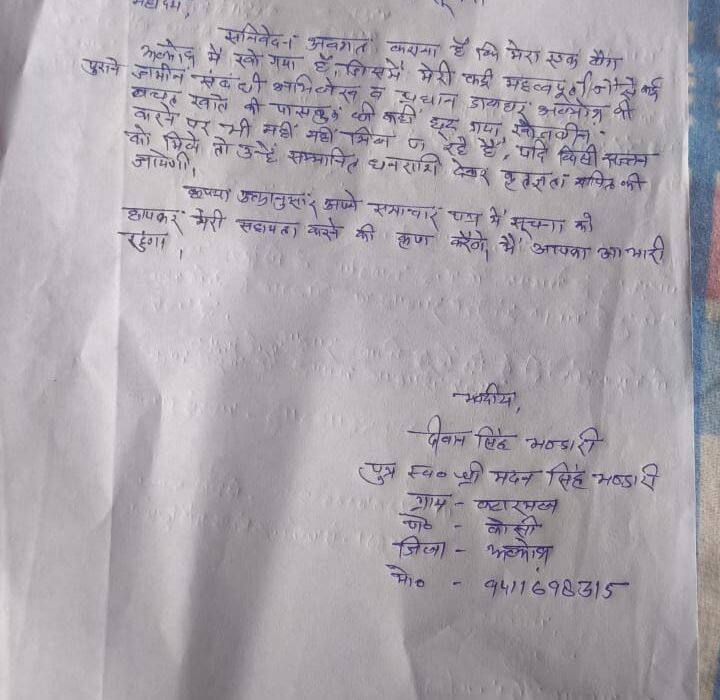 महोदय,
सविनिवेदन अवगत कराना है कि मेरा एक बैग
अल्मोड़ा में खो गया है, जिसमें मेरी कई महत्वपूर्ण
पुराने जमीन संबंधी अभिलेख व प्रधान डाकघर अल्मोड़ा की
बचत खाते की पासबुक थी कहीं छूट गया, खोजबीन
करने पर भी नहीं नहीं मिल पा रहे हैं, यदि किसी सज्जन
को मिले तो उन्हें सम्मानित धनराशि देकर कृतज्ञता ज्ञापित की
जायेगी।
कृपया अपने समाचार पत्र में सूचना को
छापकर मेरी सहायता करने की कृपा करेंगे, मैं आपका आभारी
रहूंगा,
भवदीय,
दीवान सिंह भण्डारी
पुत्र स्व० श्री मदन सिंह भण्डारी
ग्राम - कटारमल
पो० - कोसी
जिला - अल्मोड़ा
मो० - 9411698315